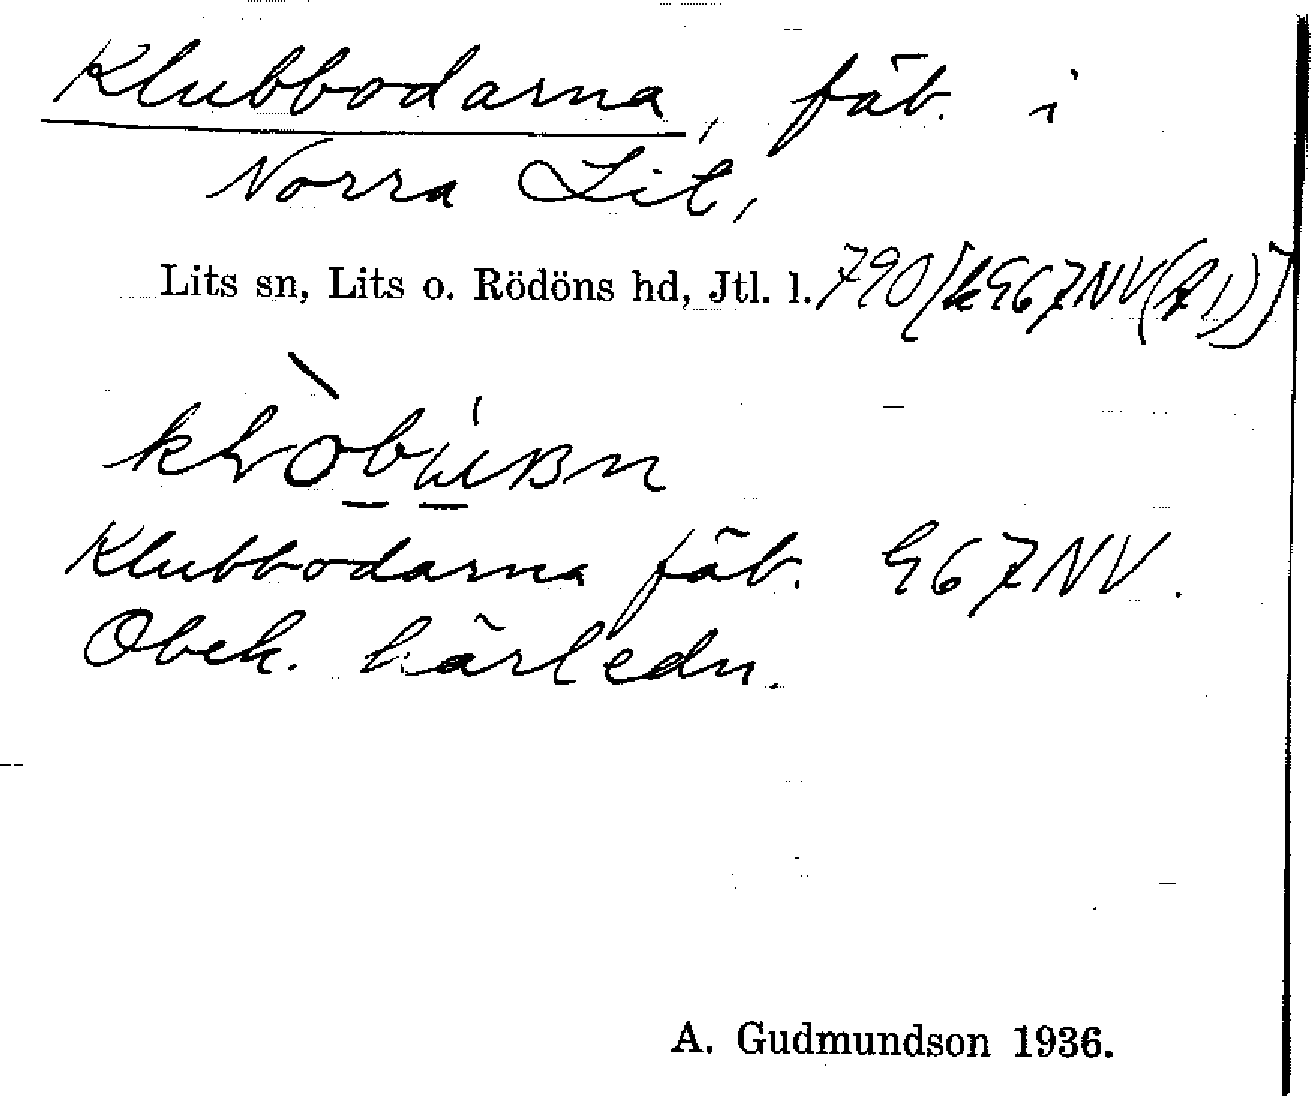 Klubbodarna, fäb. i
Norra Lit,
Lits sn, Lits o. Rödöns hd, Jtl. l. 790
Klubbodarna fäb. G67NV.
Obek. härledn.
A. Gudmundson 1936.